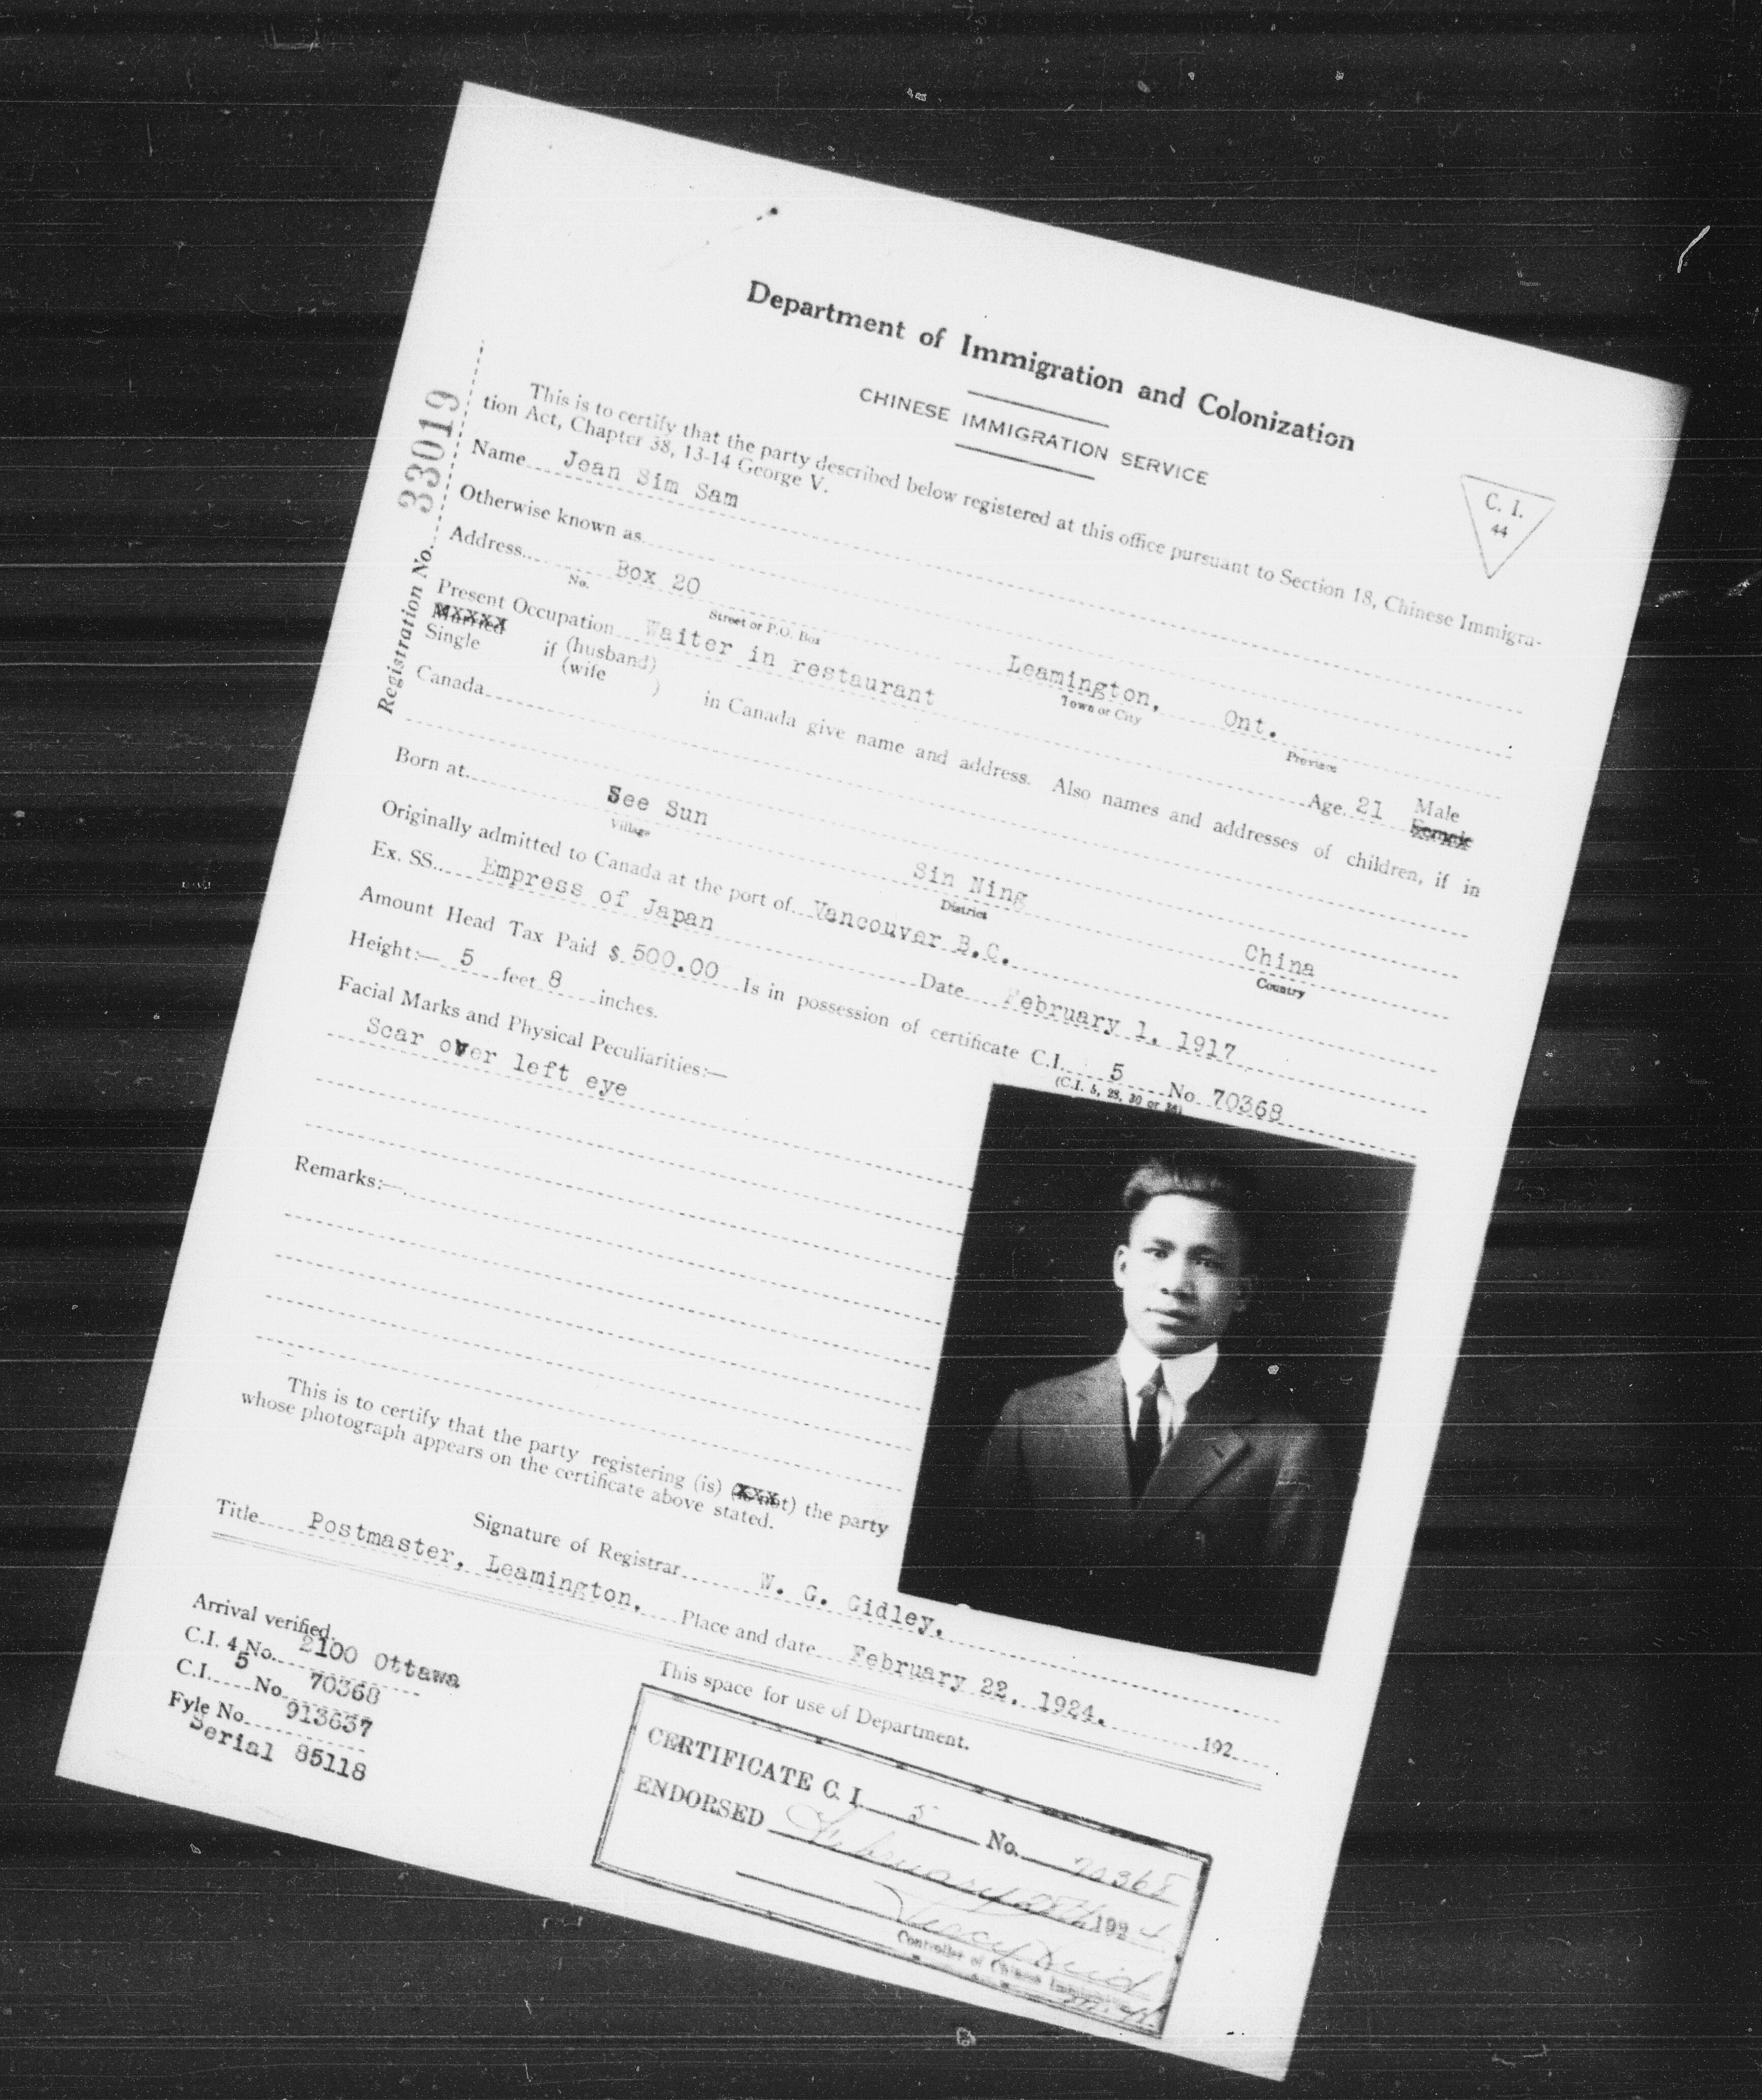 Department of Immigration and Colonization
CHINESE IMMIGRATION SERVICE
C. I.
44
Registration No. 33019
This is to certify that the party described below registered at this office pursuant to Section 18, Chinese Immigra-
tion Act, Chapter 38, 13-14 George V.
Name Jean Sim Sam
Otherwise known as
Address Box 20 Leamington, Ont.
No. Street or P.O. Box Town or City Province
Present Occupation Waiter in restaurant Age 21 Male
Married
Single if (husband) (wife ) in Canada give name and address. Also names and addresses of children, if in
Canada
Born at See Sun Sin Ning China
Village District Country
Originally admitted to Canada at the port of Vancouver B.C.
Ex. SS. Empress of Japan Date February 1, 1917
Amount Head Tax Paid $ 500.00 Is in possession of certificate C.I. 5 No 70368
(C.I. 5, 28, 30 or 36)
Height:— 5 feet 8 inches.
Facial Marks and Physical Peculiarities:—
Scar over left eye
Remarks:—
This is to certify that the party registering (is) the party
whose photograph appears on the certificate above stated.
Signature of Registrar W. G. Gidley.
Title Postmaster, Leamington, Place and date February 22. 1924. 192
Arrival verified.
C.I. 4 No. 2100 Ottawa
C.I. 5 No 70368
Fyle No 913637
Serial 85118
This space for use of Department.
CERTIFICATE C. I. 5 No. 70368
ENDORSED February 28th 1924
Controller of Chinese Immigration